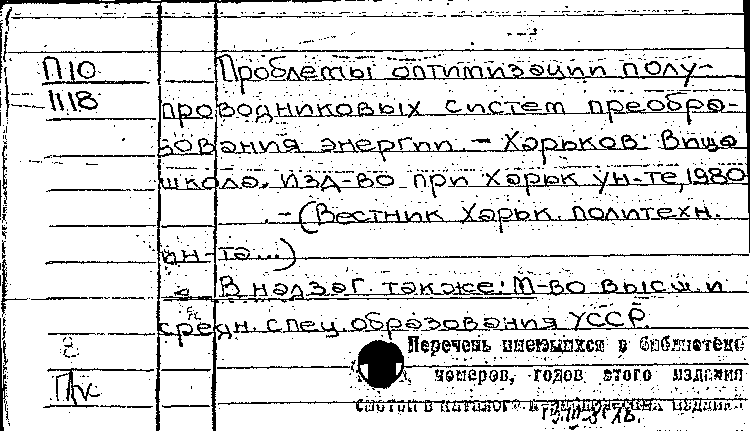 П10 Проблемы оптимизации полу-
1118 проводниковых систем преобра-
зования энергии. - Харьков: Вища
школа. Изд-во при Харьк ун-те, 1980
. - (Вестник Харьк. политехн.
ин-та...)
В надзаг. также: М-во высш. и
средн. спец. образования УССР.
Перечень имеющихся в библиотеке
номеров, годов этого издания
смотри в каталоге